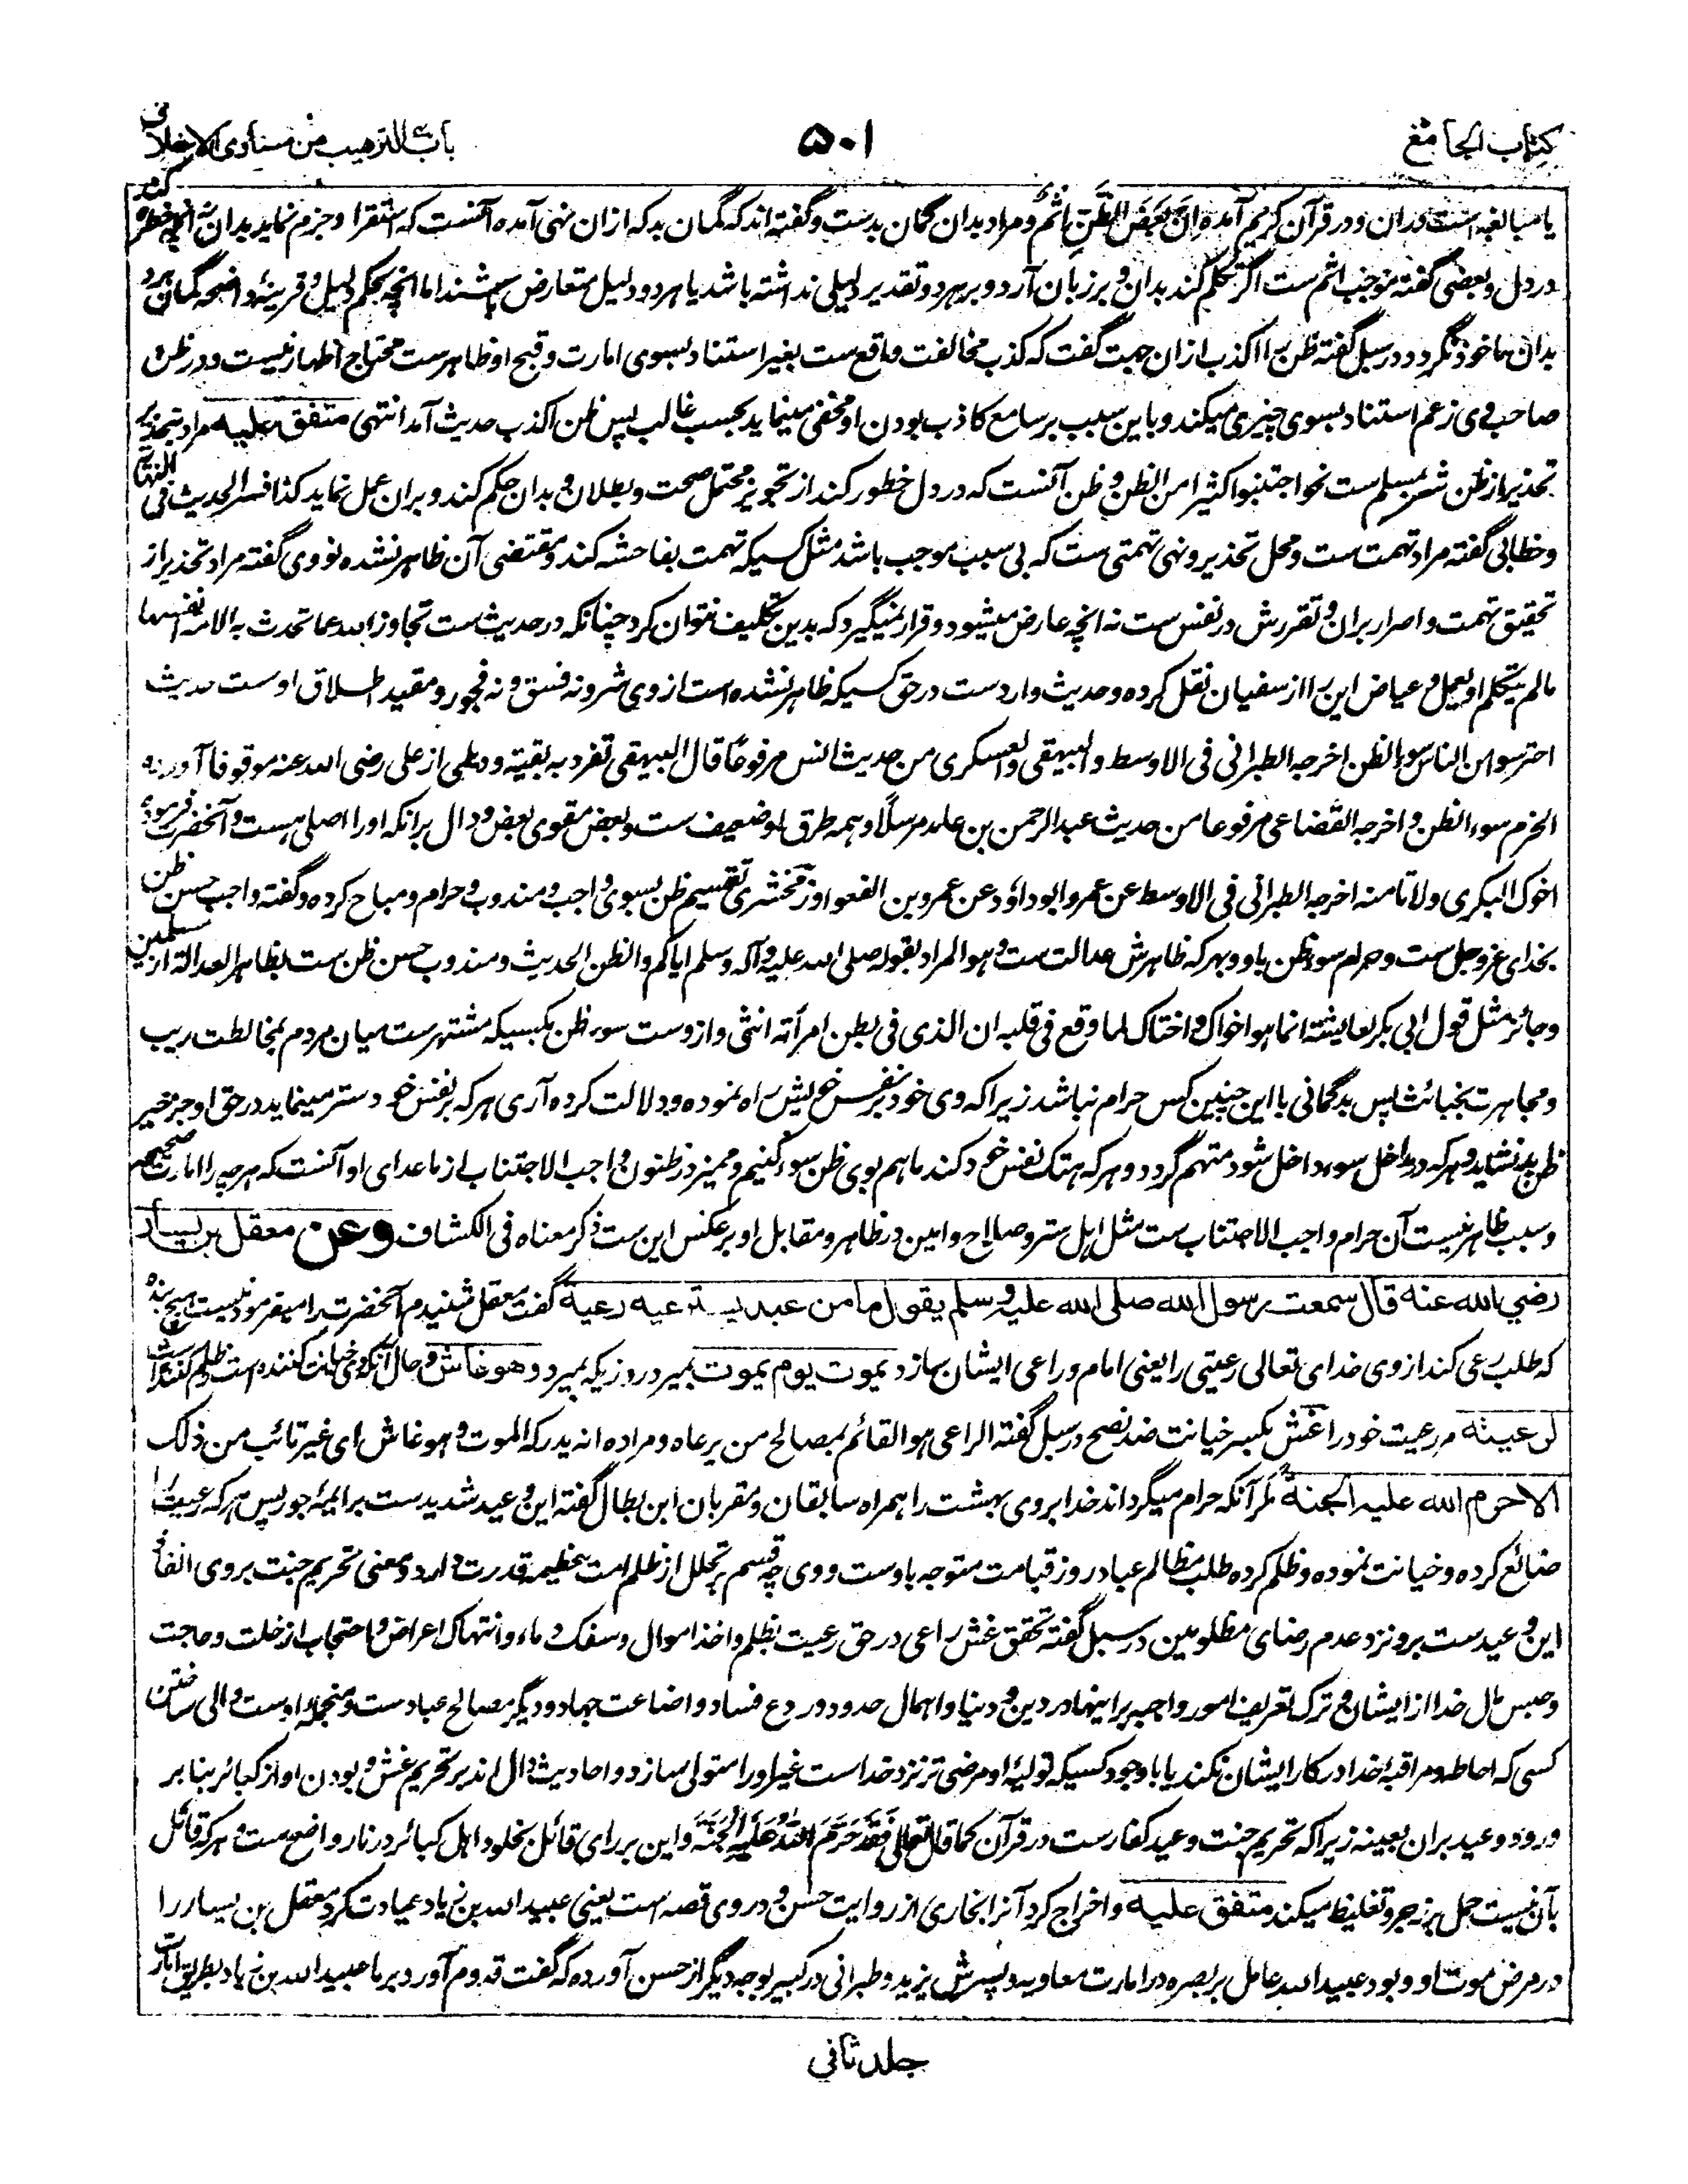 كتاب الجامع
۵۰۱
باب الترهيب من مساوى الاخلاق
يا مبالغه است دران و در قرآن كريم آمده اِنَّ بَعْضَ الظَّنِّ اِثْمٌ و مراد بدان گمان بدست و گفته اند كه گمان بد كه ازان نهى آمده آنست كه استقرار و جزم نمايد بدان نه آنچه خطره كند
در دل و بعضى گفته موجب اثم ست اگر تكلم كند بدان و بر زبان آرد و بر هر دو تقدير دليلى نداشته باشد يا هر دو دليل متعارض باشند اما آنچه بحكم دليل و قرينهٔ واضحه گمان برد
بدان ماخوذ نگردد و در سبل گفته ظن را اكذب ازان جهت گفت كه كذب مخالفت واقع ست بغير استناد بسوى امارت و قبح او ظاهرست محتاج اظهار نيست و در ظن
صاحب وى زعم استناد بسوى چيزى ميكند و باين سبب بر سامع كاذب بودن او مخفى مينمايد بحسب غالب پس ظن اكذب حديث آمد انتهى متفق عليه مراد بتحذير
تحذير از ظن شر بمسلم ست نحو اجتنبوا كثيرا من الظن و ظن آنست كه در دل خطور كند از تجويز محتمل صحت و بطلان و بدان حكم كند و بران عمل نمايد كذا فسر الحديث فى النهاية
و خطابى گفته مراد تهمت ست و محل تحذير و نهى تهمتى ست كه بى سبب موجب باشد مثل كسيكه تهمت بفاحشه كند و مقتضى آن ظاهر نشده نووى گفته مراد تحذير از
تحقيق تهمت و اصرار بران و تقررش در نفس ست نه انچه عارض ميشود و قرار نميگيرد كه بدين تكليف نتوان كرد چنانكه در حديث ست تجاوز الله عما تحدث به الامة انفسها
مالم يتكلم او يعمل و عياض اين را از سفيان نقل كرده و حديث وارد ست در حق كسيكه ظاهر نشده است از وى شر و نه فسق و نه فجور و مقيد اطلاق اوست حديث
احترسوا من الناس بسوء الظن اخرجه الطبرانى فى الاوسط و البيهقى و العسكرى من حديث انس مرفوعًا قال البيهقى تفرد به بقية و ديلمى از على رضى الله عنه موقوفا آورده
الحزم سوء الظن و اخرجه القضاعى مرفوعا من حديث عبد الرحمن بن عائد مرسلًا و همه طرق او ضعيف ست و بعض مقوى بعض و دال برانكه او را اصلى هست و آنحضرت فرموده
اخوك البكرى ولا تامنه اخرجه الطبرانى فى الاوسط عن عمر و ابو داؤد عن عمرو بن الفغوا و زمخشرى تقسيم ظن بسوى واجب و مندوب و حرام و مباح كرده و گفته واجب حسن ظن
بخداى عز و جل ست و حرام سوء ظن باو و بهر كه ظاهرش عدالت ست و هو المراد بقوله صلى الله عليه و آله و سلم اياكم والظن الحديث و مندوب حسن ظن ست بظاهر العدالة از مسلمين
و جائز مثل قول ابى بكر لعايشة انما هو اخواك و اختاك لما وقع فى قلبه ان الذى فى بطن امرأته انثى و ازوست سوء ظن بكسيكه مشتهرست ميان مردم بمخالطت ريب
و مجاهرت بخبائث پس بدگمانى با اين چنين كس حرام نباشد زيرا كه وى خود بر نفس خويش راه نموده و دلالت كرده آرى هر كه بر نفس خود ستر مينمايد در حق او جز خير
ظن بد نشايد و هر كه در مداخل سوء داخل شود متهم گردد و هر كه هتك نفس خود كند ما هم بوى ظن سوء كنيم و مميز در ظنون واجب الاجتناب از ماعداى او آنست كه هر چه را امارت صحيحه
و سبب ظاهر نيست آن حرام و اجب الاجتناب ست مثل اهل ستر و صلاح و امين در ظاهر و مقابل او بر عكس اين ست ذكر معناه فى الكشاف وعن معقل بن يسار
رضي الله عنه قال سمعت رسول الله صلى الله عليه وسلم يقول ما من عبد يسترعيه رعية گفت معقل شنيدم آنحضرت را ميفرمود نيست هيچ بنده
كه طلب رعى كند از وى خداى تعالى رعيتى را يعنى امام و راعى ايشان سازد يموت يوم يموت بميرد روزيكه بميرد وهو غاش و حال آنكه وى خيانت كننده است ظلم كننده است
لرعيته مر رعيت خود را غش بكسر خيانت ضد نصح در سبل گفته الراعى هو القائم بمصالح من يرعاه و مراده انه يدركه الموت و هو غاش اى غير تائب من ذلك
الا حرم الله عليه الجنة مگر آنكه حرام ميگرداند خدا بر وى بهشت را همراه سابقان و مقربان ابن بطال گفته اين وعيد شديدست بر ائمهٔ جور پس هر كه رعيت را
ضائع كرده و خيانت نموده و ظلم كرده طلب مظالم عباد روز قيامت متوجه باوست و وى چه قسم بر تحلل از ظلم امت عظيمه قدرت دارد و معنى تحريم جنت بر وى انفاذ
اين وعيدست برو نزد عدم رضاى مظلومين در سبل گفته تحقق غش راعى در حق رعيت بظلم و اخذ اموال و سفك دماء و انتهاك اعراض و احتجاب از خلت و حاجت
و حبس مال خدا از ايشان و ترك تعريف امور واجبه بر اينها در دين و دنيا و اهمال حدود و ردع فساد و اضاعت جهاد و ديگر مصالح عبادست و منجمله اوست والى ساختن
كسى كه احاطه و مراقبهٔ خدا در كار ايشان نكند يا با وجود كسيكه توليهٔ او مرضى تر نزد خداست غير او را متولى سازد و احاديث دال اند بر تحريم غش و بودن او از كبائر بنا بر
ورود وعيد بران بعينه زيرا كه تحريم جنت وعيد كفارست در قرآن كما قال تعالى فَقَدْ حَرَّمَ اللّٰهُ عَلَيْهِ الْجَنَّةَ و اين بر راى قائل بخلود اهل كبائر در نار واضح ست و هر كه قائل
بآن نيست حمل بر زجر و تغليظ ميكند متفق عليه و اخراج كرد آنرا بخارى از روايت حسن و در وى قصه است يعنى عبيد الله بن زياد عيادت كرد معقل بن يسار را
در مرض موت او و بود عبيد الله عامل بر بصره در امارت معاويه و پسرش يزيد و طبرانى در كبير بوجه ديگر از حسن آورده كه گفت قدوم آورد بر ما عبيد الله بن زياد بطريق امارت
جلد ثانى